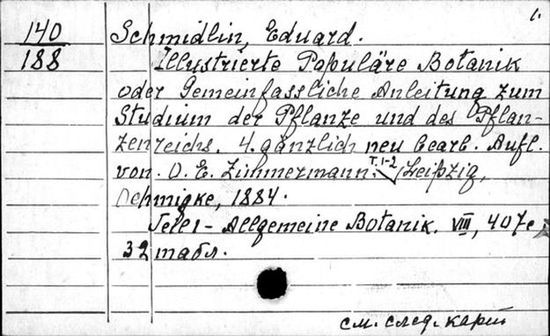 1.
140
188
Schmidlin, Eduard.
Illustrierte Populäre Botanik
oder Gemeinfassliche Anleitung zum
Studium der Pflanze und des Pflan-
zenreichs. 4. gänzlich neu bearb. Aufl.
von. O. E. Zimmermann. T. 1-2 Leipzig,
Oehmigke, 1884.
Teil 1 - Allgemeine Botanik. VIII, 407 c
32 табл.
см. след. карт